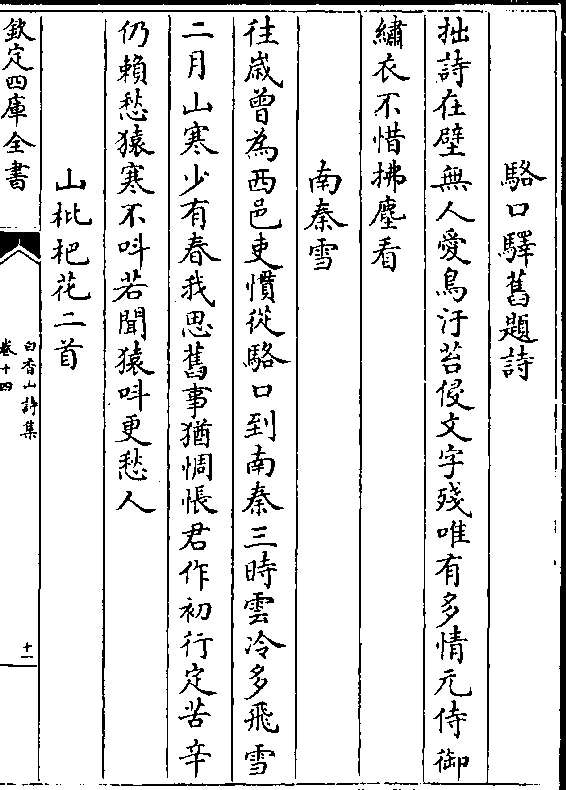 駱口驛舊題詩
拙詩在壁無人愛鳥汙苔侵文字殘唯有多情元侍御
繡衣不惜拂塵看
南秦雪
往歲曾為西邑吏慣從駱口到南秦三時雲冷多飛雪
二月山寒少有春我思舊事猶惆悵君作初行定苦辛
仍賴愁猿寒不呌若聞猿呌更愁人
山枇杷花二首
欽定四庫全書
白香山詩集
卷十四
十一